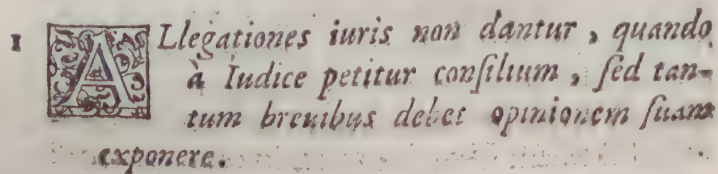 1 ALlegationes iuris non dantur, quando
à Iudice petitur conſilium, ſed tan-
tum breuibus debet opinionem ſuam
exponere.